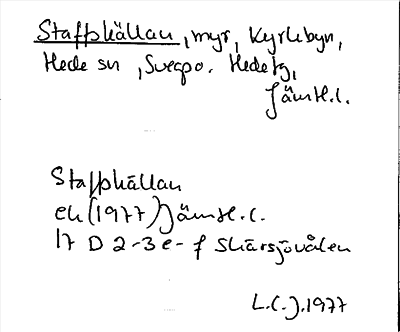 Staffskällan, myr, Kyrkbyn,
Hede sn, Svegpo. Hede tg,
Jämtl.l.
Staffskällan
ek (1977) Jämtl.l.
17 D 2-3 e-f Skärsjövålen
L.C.J. 1977